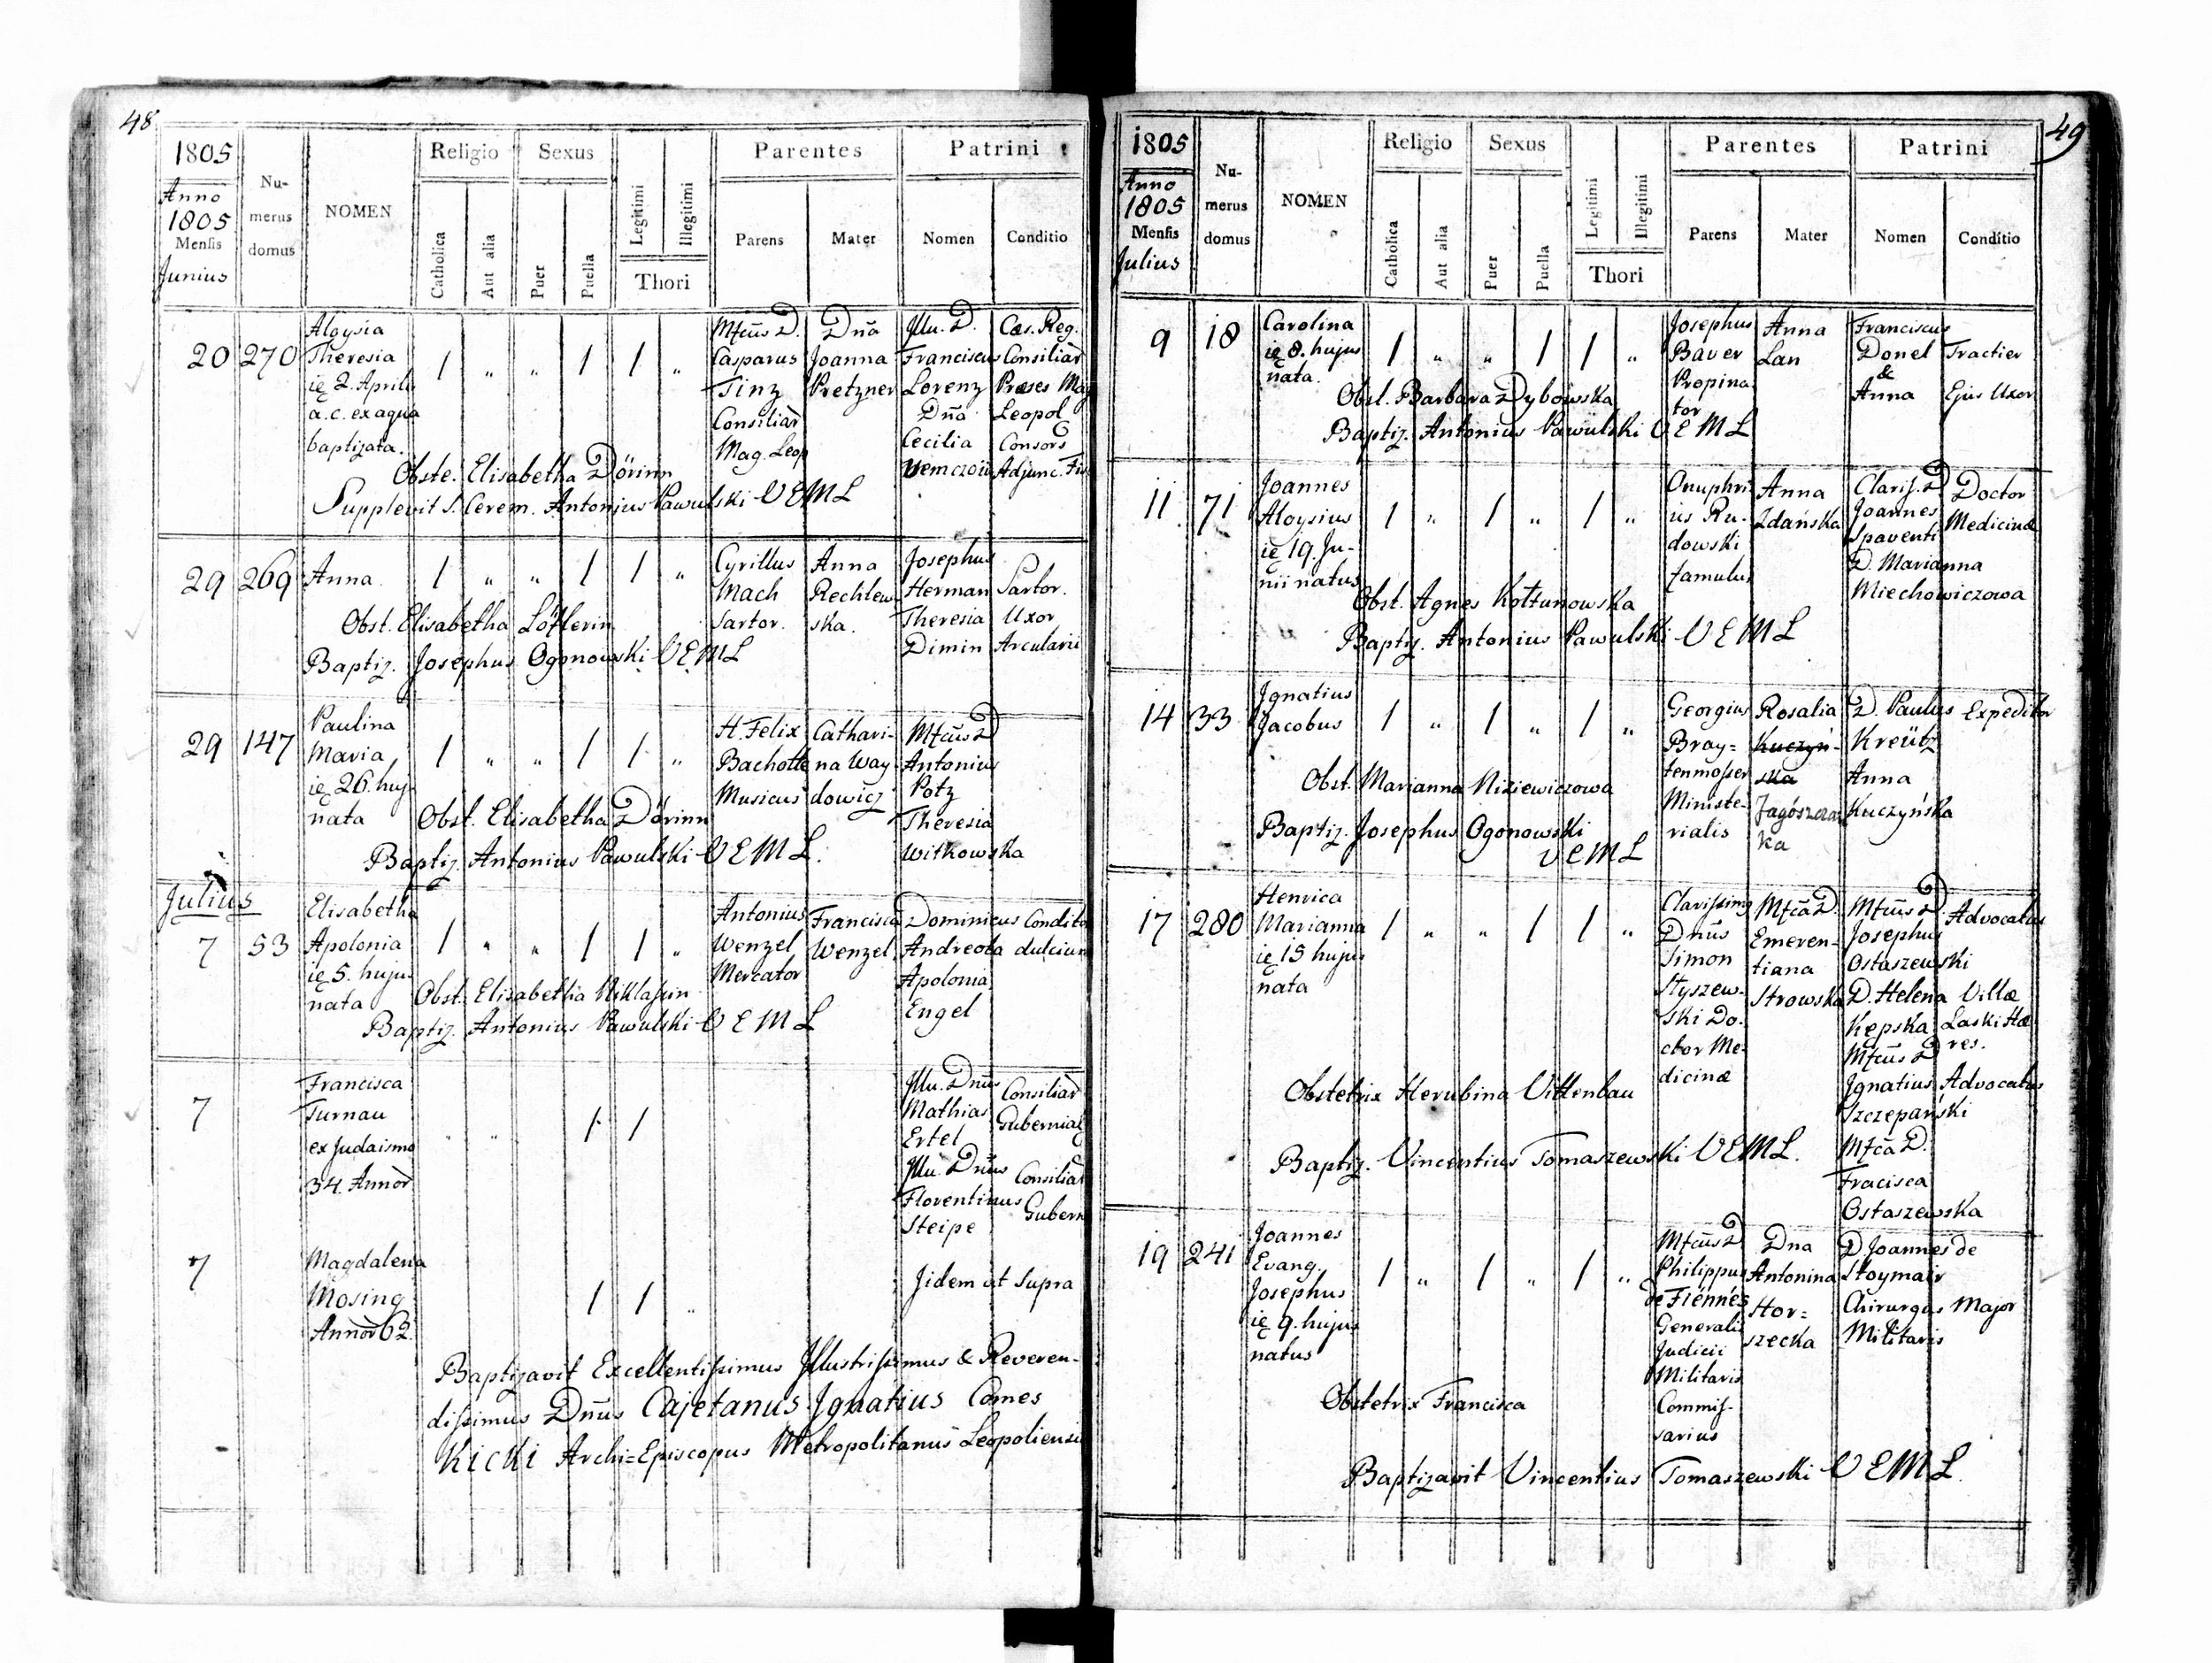 48
1805
Anno
1805
Mensis
Junius
Nu-
merus
domus
NOMEN
Religio
Catholica
Aut alia
Sexus
Puer
Puella
Legitimi
Illegitimi
Thori
Parentes
Parens
Mater
Patrini
Nomen
Conditio
20
270
Aloysia
Theresia
ię 2. Aprilis
a. c. ex aqua
baptizata.
/ „ „ / / „
Mfcus D.
Casparus
Tinz
Consiliar
Mag. Leop
Dna
Joanna
Pretzner
Jllu. D.
Franciscus
Lorenz
Dna
Cecilia
Cæs. Reg.
Consiliar
Præses Mag
Leopol
Consors
Adjunc. Fis
Obste. Elisabetha Dörinn
Supplevit S. Cerem. Antonius Pawulski VEML
29
269
Anna
/ „ „ / / „
Cyrillus
Mach
Sartor.
Anna
Rechlew-
ska.
Josephus
Herman
Theresia
Dimin
Sartor.
Uxor
Arcularii
Obst. Elisabetha Löflerin
Baptiz. Josephus Ogonowski VEML
29
147
Paulina
Maria
ię 26. huj.
nata
/ „ „ / / „
H. Felix
Bachotte
Musicus
Cathari-
na Way-
dowicz
Mfcus D
Antonius
Potz
Theresia
Witkowska
Obst. Elisabetha Dörinn
Baptiz. Antonius Pawulski VEML.
Julius
7
53
Elisabetha
Apolonia
ię 5. hujus
nata
/ „ „ / / „
Antonius
Wenzel
Mercator
Francisca
Wenzel
Dominicus
Andreola
Apolonia
Engel
Condito
dulcium
Obst. Elisabetha Niklassin
Baptiz. Antonius Pawulski VEML
7
Francisca
Turnau
ex Judaismo
34. Annor
„ „ / /
Jllu. Dnus
Mathias
Ertel
Jllu. Dnus
Florentinus
Steipe
Consiliar
Gubernial
Consiliar
Gubern
7
Magdalena
Mosing
Annor 62.
/ / „
Jidem ut Supra
Baptizavit Excellentissimus Jllustrissimus & Reveren-
dissimus Dnus Cajetanus Jgnatius Comes
Kicki Archi=Episcopus Metropolitanus Leopoliensis
49
1805
Anno
1805
Mensis
Julius
Nu-
merus
domus
NOMEN
Religio
Catholica
Aut alia
Sexus
Puer
Puella
Legitimi
Illegitimi
Thori
Parentes
Parens
Mater
Patrini
Nomen
Conditio
9
18
Carolina
ię 8. hujus
nata.
/ „ „ / / „
Josephus
Baver
Propina
tor
Anna
Lan
Franciscus
Donel
&
Anna
Tractier
Ejus Uxor
Obst. Barbara Dybowska
Baptiz. Antonius Pawulski VEML
11
71
Joannes
Aloysius
ię 19. Ju-
nii natus
/ „ / „ / „
Onuphri
us Ru-
dowski
famulus
Anna
Zdańska
Clariss. D
Joannes
Spaventi
D. Marianna
Miechowiczowa
Doctor
Medicinæ
Obst. Agnes Kołtunowska
Baptiz. Antonius Pawulski VEML
14
33
Jgnatius
Jacobus
/ „ / „ / „
Georgius
Bray=
tenmosser
Ministe-
rialis
Rosalia
Kuczyń-
ska
ka
D. Paulus
Kreütz
Anna
Kuczyńska
Expeditor
Obst. Marianna Niziewiczowa
Baptiz. Josephus Ogonowski
VEML
17
280
Henrica
Marianna
ię 15 hujus
nata
/ „ „ / / „
Clarissimg
Dnus
Simon
Styszew-
ski Do-
ctor Me-
dicinæ
Mfca D.
Emeren-
tiana
Strowska
Mfcus D
Josephus
Ostaszewski
D. Helena
Kępska
Mfcus D
Jgnatius
Szczepański
Mfca D.
Fracisca
Ostaszewska
Advocatus
Villæ
Laski Hæ
res.
Advocatus
Obstetrix Herubina Vittenbau
Baptiz. Vincentius Tomaszewski VEML.
19
241
Joannes
Evang.
Josephus
ię 9. hujus
natus
/ „ / „ / „
Mfcus D
Philippus
de Fiénnés
Generalis
Judicii
Militaris
Commis-
sarius
Dna
Antonina
Hor=
szecka
D. Joannes de
Stoymair
Chirurgus Major
Militaris
Obstetrix Francisca
Baptizavit Vincentius Tomaszewski VEML.